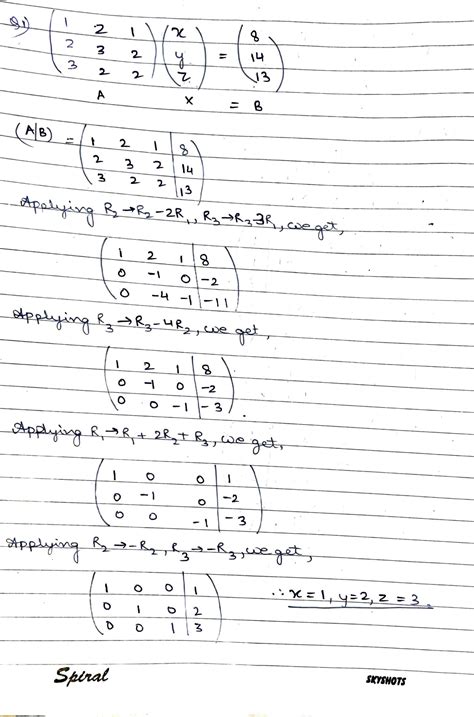 Q1) ( 1 2 1 ) ( x ) ( 8 )
( 2 3 2 ) ( y ) = ( 14 )
( 3 2 2 ) ( z ) ( 13 )
A X = B
(A|B) = ( 1 2 1 | 8 )
( 2 3 2 | 14 )
( 3 2 2 | 13 )
Applying R₂→R₂-2R₁, R₃→R₃-3R₁, we get,
( 1 2 1 | 8 )
( 0 -1 0 | -2 )
( 0 -4 -1 | -11 )
Applying R₃→R₃-4R₂, we get,
( 1 2 1 | 8 )
( 0 -1 0 | -2 )
( 0 0 -1 | -3 ).
Applying R₁→R₁+2R₂+R₃, we get,
( 1 0 0 | 1 )
( 0 -1 0 | -2 )
( 0 0 -1 | -3 )
Applying R₂→-R₂, R₃→-R₃, we get,
( 1 0 0 | 1 ) ∴ x=1, y=2, z=3.
( 0 1 0 | 2 )
( 0 0 1 | 3 )
Spiral SKYSHOTS